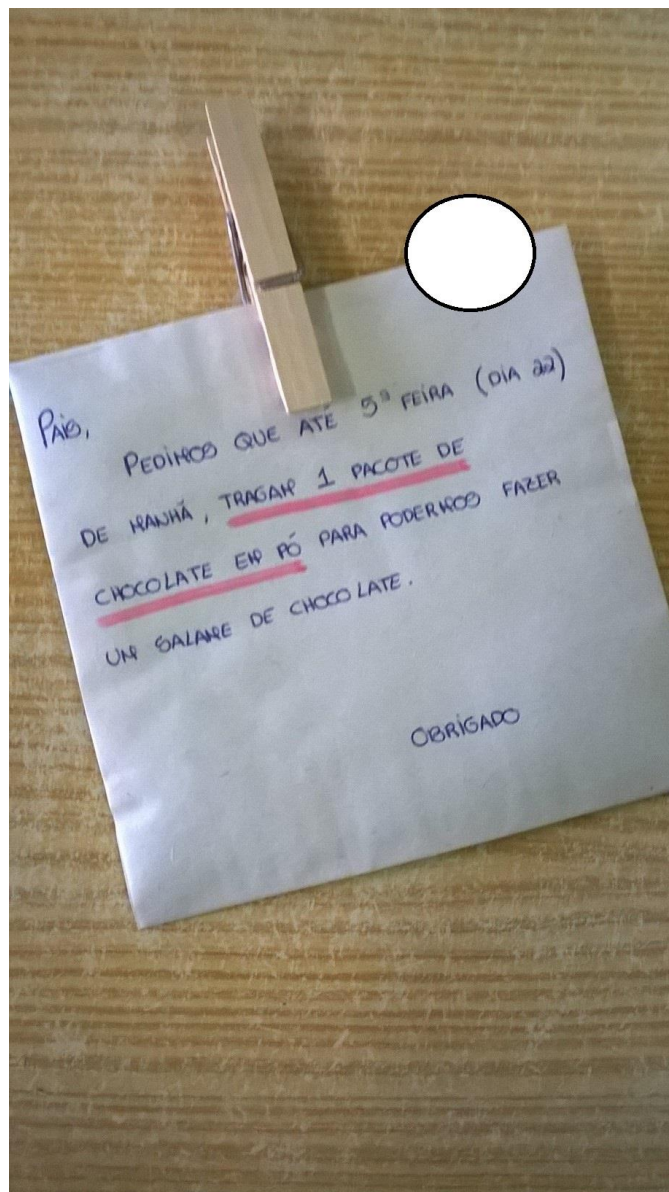 PAIS,
PEDIMOS QUE ATÉ 5ª FEIRA (DIA 22)
DE MANHÃ, TRAGAM 1 PACOTE DE
CHOCOLATE EM PÓ PARA PODERMOS FAZER
UM SALAME DE CHOCOLATE.
OBRIGADO